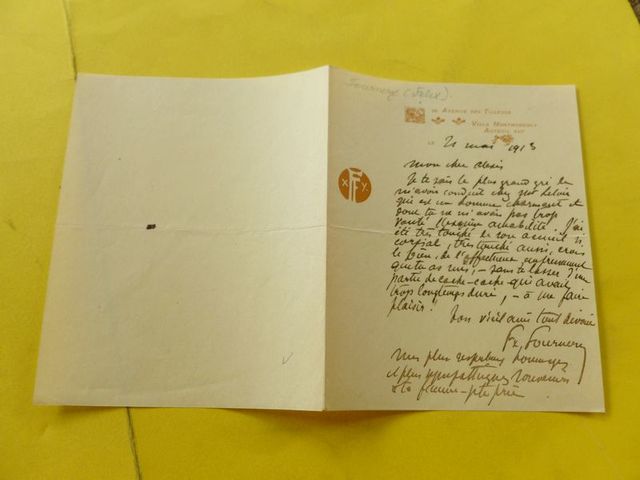 Fournery (Félix).
Avenue des Tilleuls
Villa Montmorency
Auteuil
LE 21 mai 1913
X F Y
Mon cher Alexis
Je te sais le plus grand gré de
m'avoir conduit chez
qui est un homme charmant et
dont tu ne m'avais pas trop
vanté l'exquise amabilité. J'ai
été très touché de son accueil si
cordial, très touché aussi, crois
le bien, de l'affectueux
que tu as mis, – sans te lasser d'une
partie de cache-cache qui avait
trop longtemps duré, – à me faire
plaisir!
Ton vieil ami tout dévoué
Fx. Fournery
Mes plus respectueux hommages
et plus sympathiques souvenirs
à ta